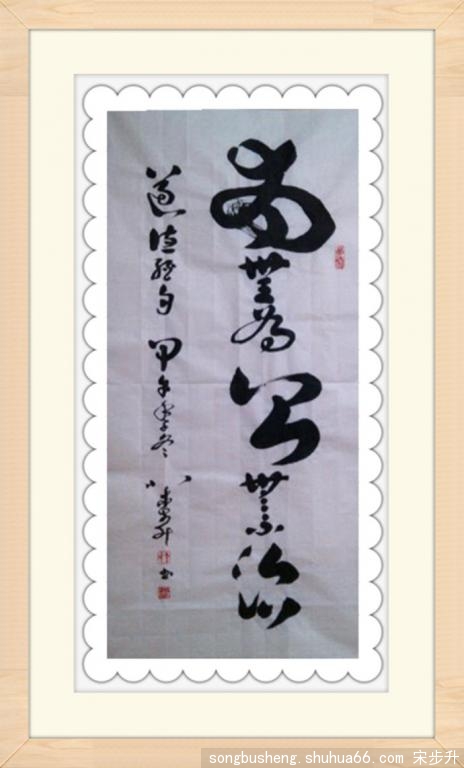 為無為則無不治
道德經句 甲午季冬 宋步升 書
songbusheng.shuhua66.com 宋步升